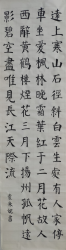 遠上寒山石徑斜白雲生處有人家停
車坐愛楓林晚霜葉紅於二月花故人
西辭黃鶴樓煙花三月下揚州孤帆遠
影碧空盡唯見長江天際流